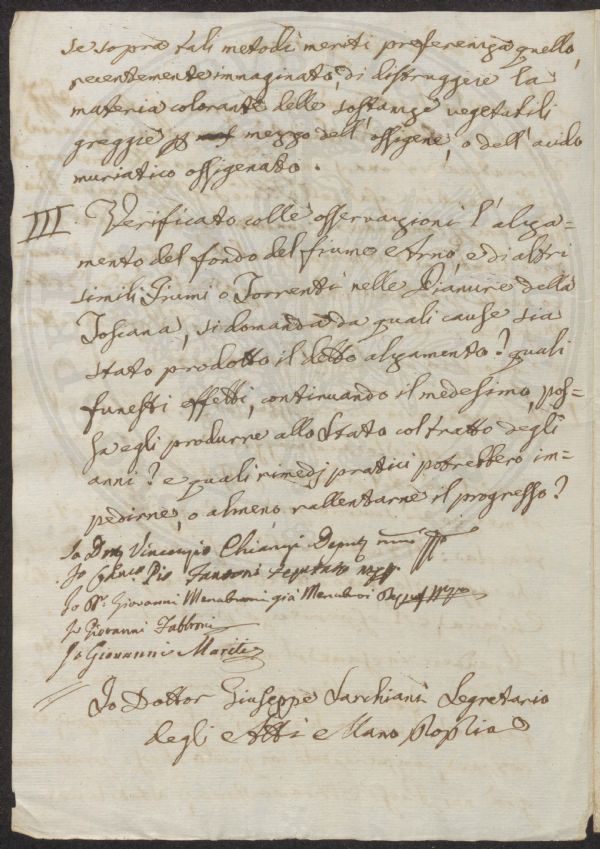 se sopra tali metodi meriti preferenza quello,
recentemente immaginato, di distruggere la
materia colorante delle sostanze vegetabili
greggie p mezzo dell'ossigene, o dell'acido
muriatico ossigenato.
III Verificato colle osservazioni l'alza=
mento del fondo del fiume Arno, e di altri
simili Fiumi o Torrenti nelle Pianure della
Toscana, si domanda da quali cause sia
stato prodotto il detto alzamento? quali
funesti effetti, continuando il medesimo, pos=
sa egli produrre allo Stato col tratto degli
anni? e quali rimedj pratici potrebbero im=
pedirne, o almeno rallentarne il progresso?
Io Vincenzio Chiarugi
Io Pio Fantoni Deputato
Io Giovanni già
Io Giovanni Fabbroni
Io Giovanni Mariti
Io Dottor Giuseppe Sarchiani Segretario
degli Atti Mano Propria